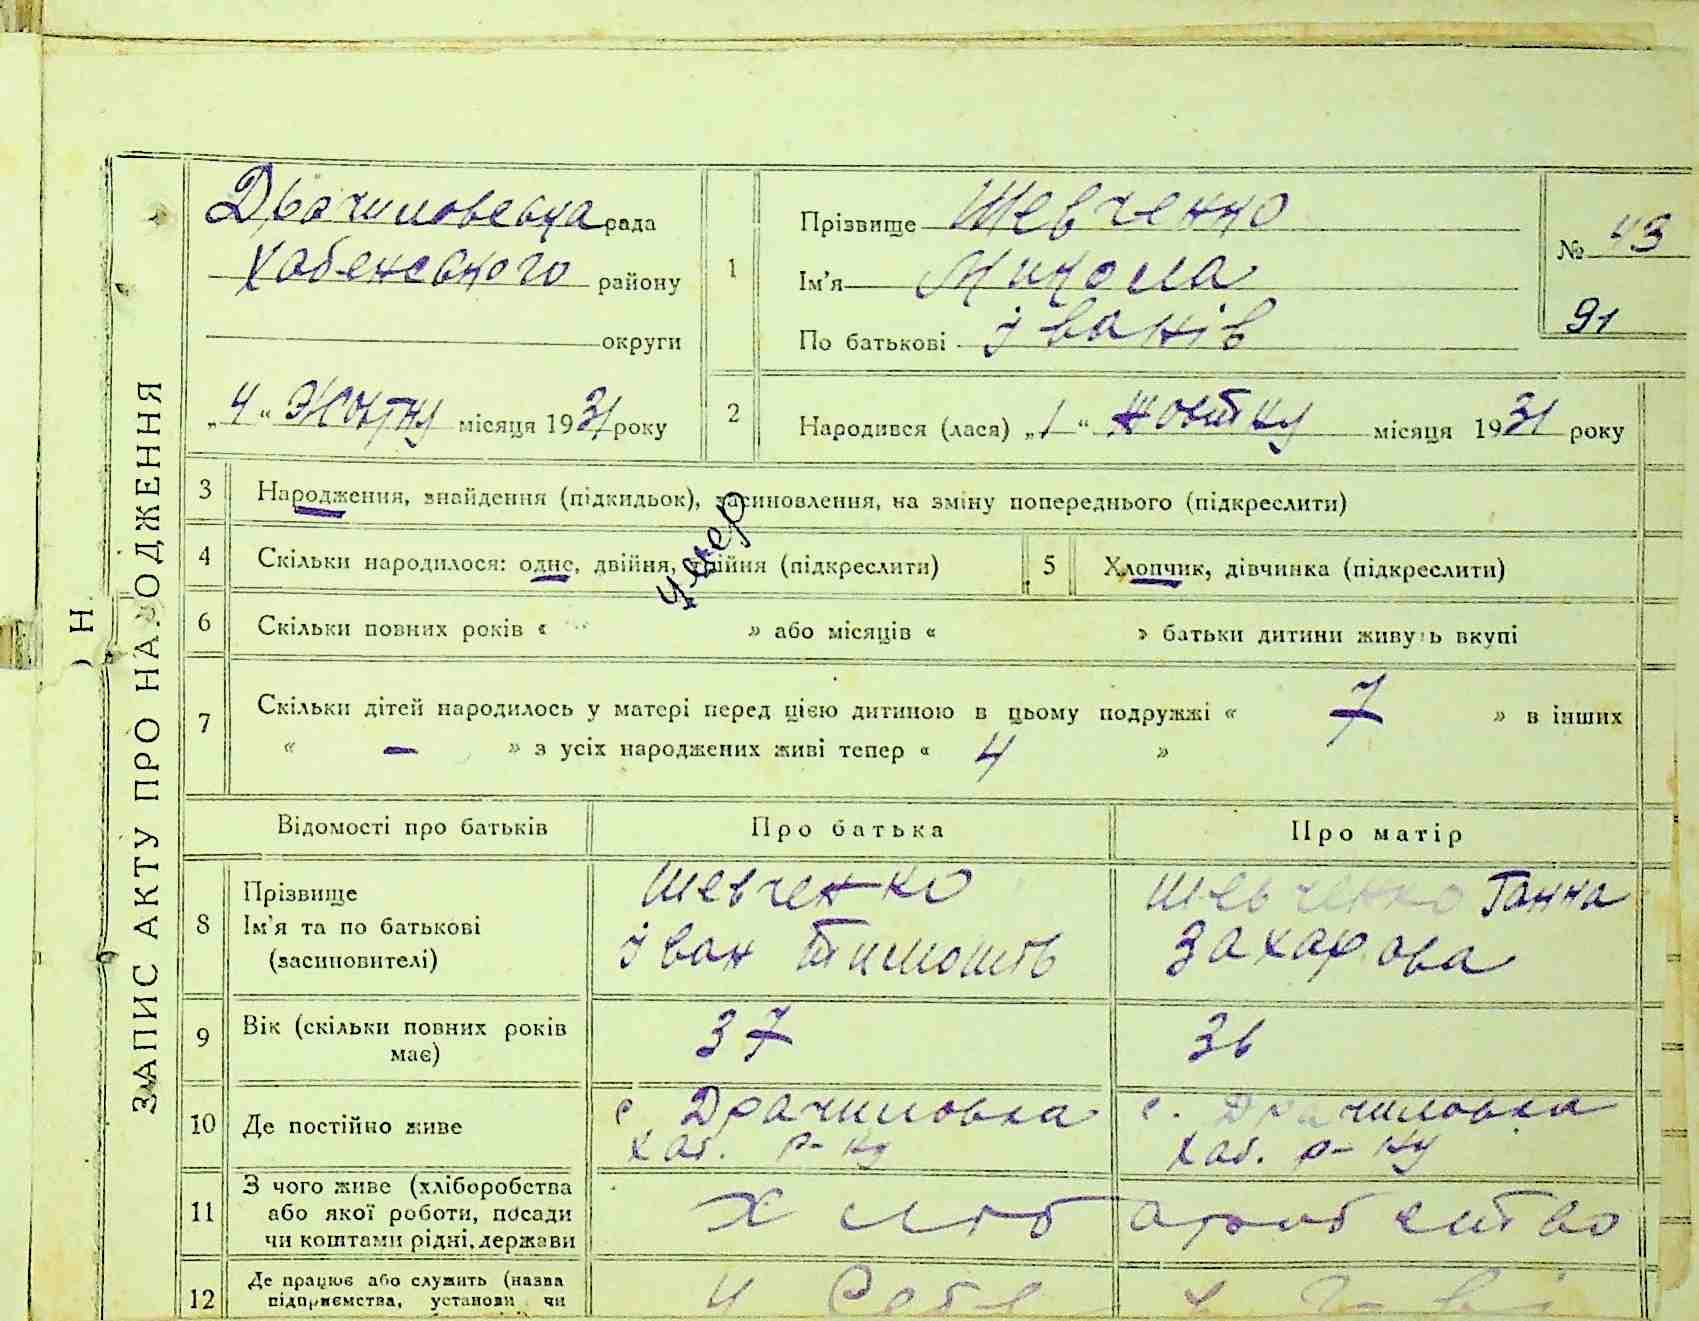 ЗАПИС АКТУ ПРО НАРОДЖЕННЯ
Драчиловська рада
Хабенського району
округи
„4“ Жовтну місяця 1931 року
1
Прізвище Шевченко
Ім'я Микола
По батькові Іванів
№ 43
91
2
Народився (лася) „1“ Жовтну місяця 1931 року
3 Народження, знайдення (підкидьок), засиновлення, на зміну попереднього (підкреслити)
4 Скільки народилося: одне, двійня, трійня (підкреслити)
5 Хлопчик, дівчинка (підкреслити)
6 Скільки повних років « » або місяців « » батьки дитини живуть вкупі
7 Скільки дітей народилось у матері перед цією дитиною в цьому подружжі « 7 » в інших
« — » з усіх народжених живі тепер « 4 »
Відомості про батьків Про батька Про матір
8 Прізвище
Ім'я та по батькові
(засиновителі)
Шевченко
Іван
Шевченко Ганна
Захарова
9 Вік (скільки повних років
має)
37
36
10 Де постійно живе
с Драчиловка
Хаб. р-ну
с. Драчиловка
Хаб. р-ну
11 З чого живе (хліборобства
або якої роботи, посади
чи коштами рідні, держави
12 Де працює або служить (назва
підприємства, установи чи